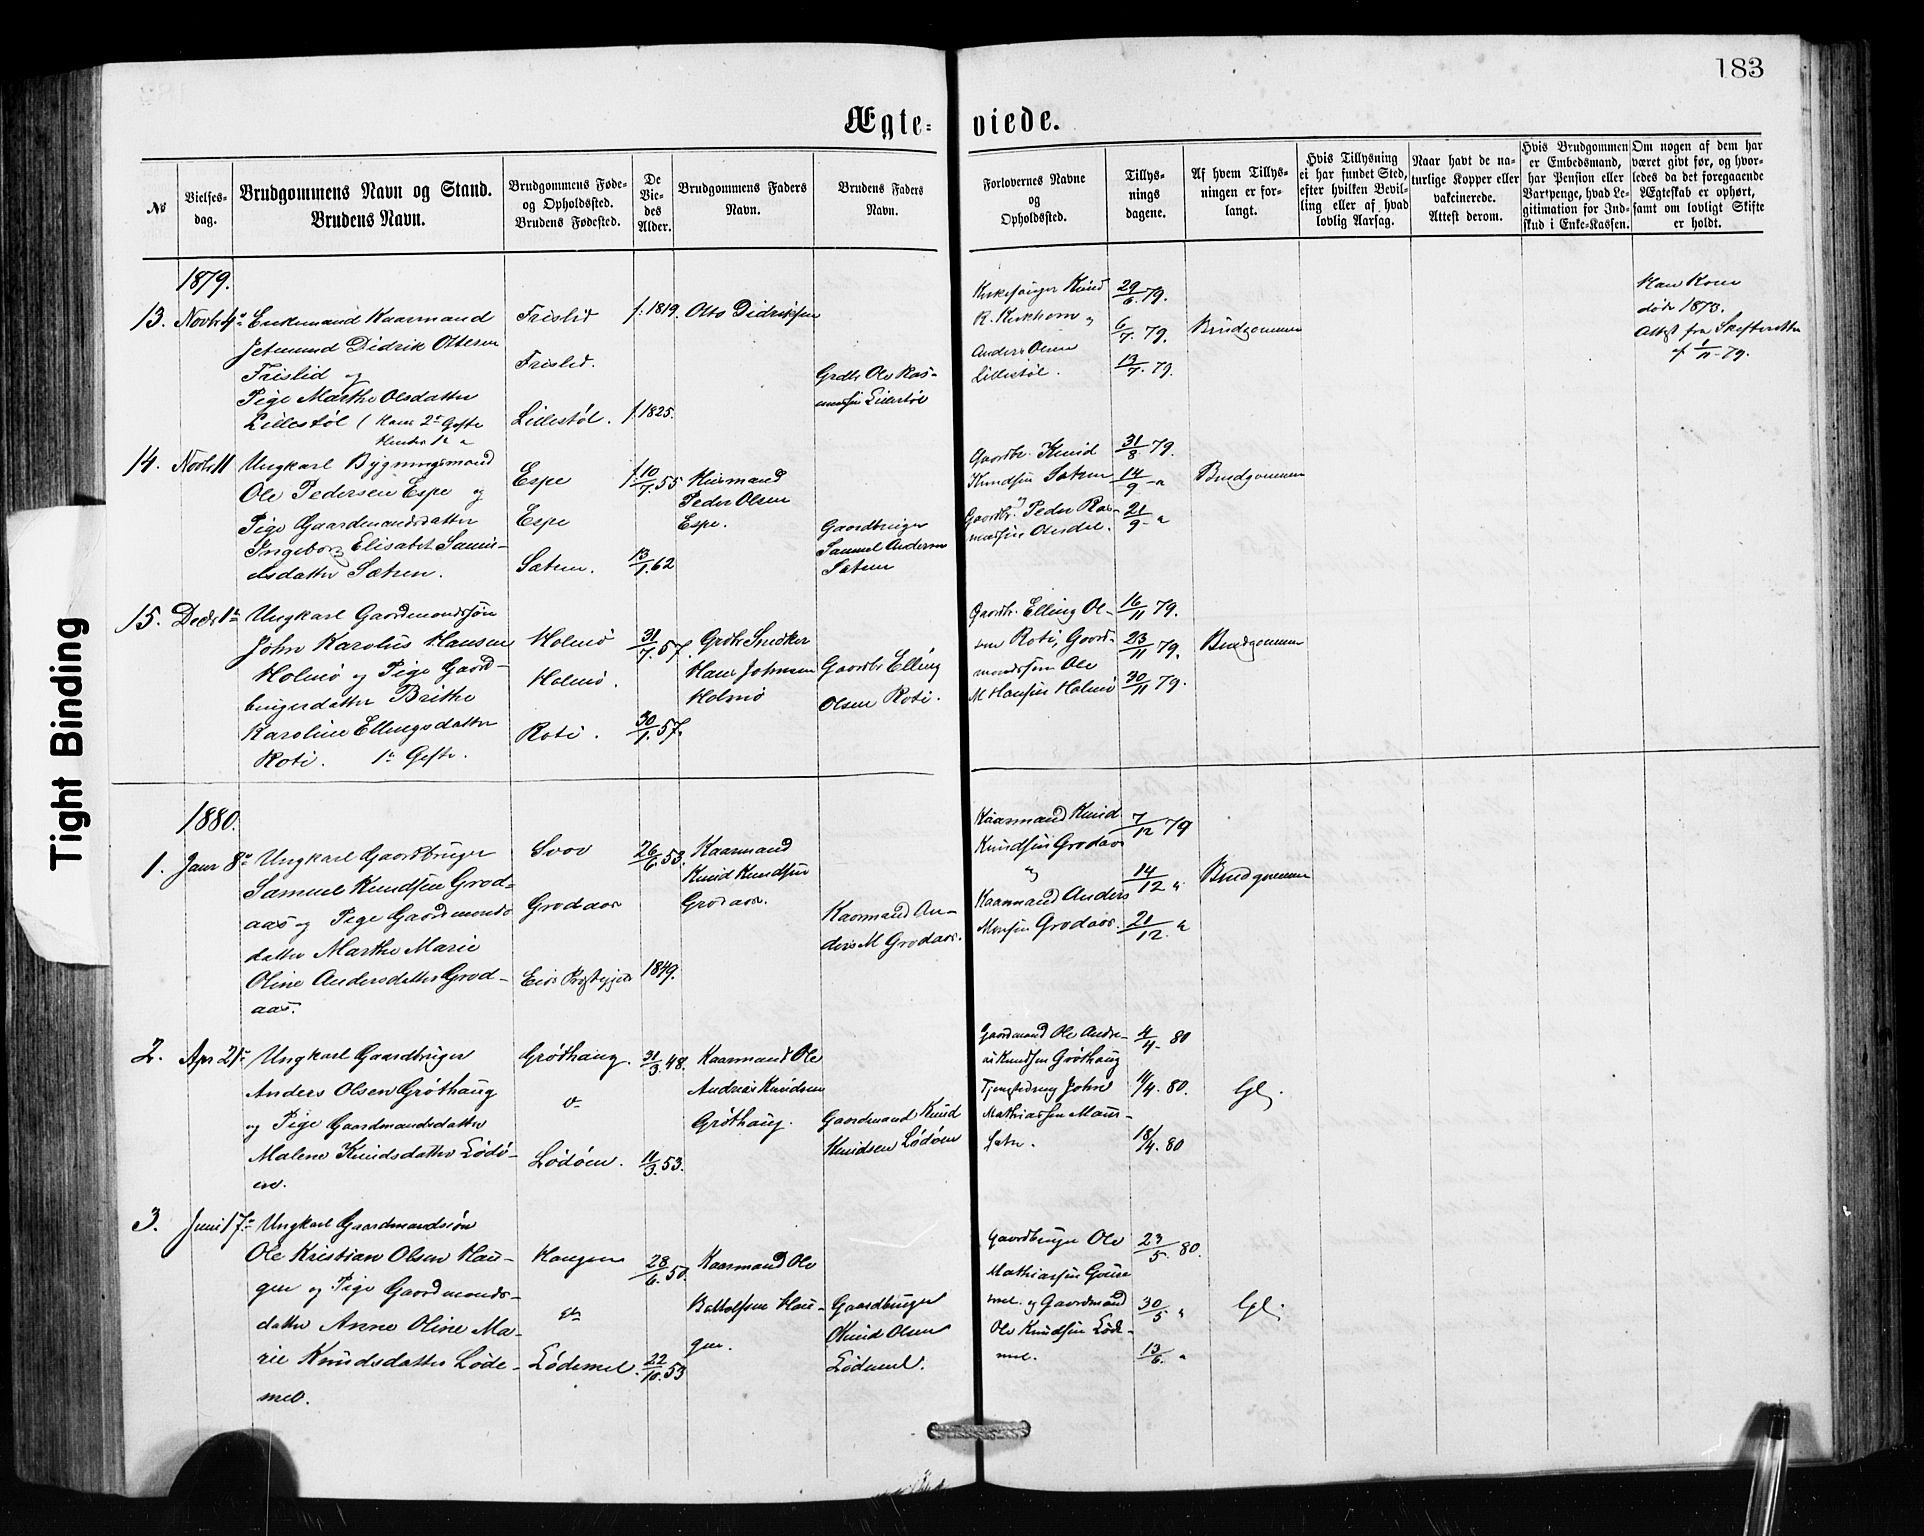 183
Ægte-
viede.
Tight Binding
№
Vielses-
dag.
Brudgommens Navn og Stand.
Brudens Navn.
Brudgommens Føde-
og Opholdsted.
Brudens Fødested.
De
Vie-
des
Alder.
Brudgommens Faders
Navn.
Brudens Faders
Navn.
Forlovernes Navne
og
Opholdsted.
Tillys-
nings
dagene.
Af hvem Tillys-
ningen er for-
langt.
Hvis Tillysning
ei har fundet Sted,
efter hvilken Bevil-
ling eller af hvad
lovlig Aarsag.
Naar havt de na-
turlige Kopper eller
vakcinerede.
Attest derom.
Hvis Brudgommen
er Embedsmand,
har Pension eller
Vartpenge, hvad Le-
gitimation for Ind-
skud i Enke-Kassen.
Om nogen af dem har
været givt før, og hvor-
ledes da det foregaaende
Ægteskab er ophørt,
samt om lovligt Skifte
er holdt.
1879.
13. Novbr 4de
Enkemand Kaarmand
Jetmund Didrik Ottesen
Frislid og
Pige Marthe Olsdatter
Lillestøl ( Hans 2den Gifte
Hendes 1te
Frislid
Frislid.
Lillestøl.
f. 1819.
f. 1825.
Otto Didriksen
Grdbr Ole Ras-
mussen Lillestøl
Kirkesanger Knud
R. Kirkhorn og
Anders Olsen
Lillestøl.
29/6. 79.
6/7. 79.
13/7. 79.
Brudgommen
Hans Kone
døde 1873.
Attest fra Skifteretten
af 1/11-79.
14. Novbr 11
Ungkarl Bygningsmand
Ole Pedersen Espe og
Pige Gaardmandsdatter
Ingeborg Elisabet Samu-
elsdatter Sætren.
Espe
Espe
Sætren.
f. 10/7. 55
13/1. 62
Huusmand
Peder Olsen
Espe.
Gaardbruger
Samuel Andersen
Sætren
Gaardbr. Knud
Knudsen Sætren
og
Gaardbr. Peder Ras-
mussen Aasdal.
31/8 79.
14/9 - "
21/9 - "
Brudgommen
15. Decbr 1te
Ungkarl Gaardmandssøn
John Karolus Hansen
Holmø og Pige Gaard-
brugerdatter Brithe
Karoline Ellingsdatter
Roti. 1te Gifte.
Holmø
Holmø.
Roti.
31/7. 57.
30/1. 57.
Grdbr Snedker
Hans Johnsen
Holmø
Gaardbr Elling
Olsen Roti.
Gaardbr. Elling Ol-
sen Roti, Gaard-
mandssøn Ole
M Hansen Holmø
16/11 79.
23/11 79.
30/11 79.
Brudgommen
1880.
1. Janr 8de
Ungkarl Gaardbruger
Samuel Knudsen Grod-
aas og Pige Gaardmands
datter Marthe Marie
Oline Andersdatter Grod-
aas.
Svor
Grodaas
Eids Præstegjeld
26/6. 53.
1849.
Kaarmand
Knud Knudsen
Grodaas.
Kaarmand An-
ders M Grodaas.
Kaarmand Knud
Knudsen Grodaas
og
Kaarmand Anders
Monsen Grodaas.
7/12 79
14/12 "
21/12. "
Brudgommen
2. Apr 21de
Ungkarl Gaardbruger
Anders Olsen Grøthaug
og Pige Gaardmandsdatter
Malene Knudsdatter Lødø-
en.
Grøthaug.
Lødøen.
31/3. 48.
11/3. 53.
Kaarmand Ole
Andreas Knudsen
Grøthaug.
Gaardmand Knud
Knudsen Lødøen
Gaardmand Ole Andre-
as Knudsen Grøthaug
Tjenestedreng John
Mathiassen Maur-
sætr.
4/4. 80
11/4. 80.
18/4. 80
Gl.
3. Juni 17de
Ungkarl Gaardmandssøn
Ole Kristian Olsen Hau-
gen og Pige Gaardmands-
datter Anne Oline Ma-
rie Knudsdatter Løde-
mel.
Haugen
Lødemel.
28/6. 50.
22/10. 53
Kaarmand Ole
Hau-
gen.
Gaardbruger
Knud Olsen
Lødemel.
Gaardbruger Ole
Mathiassen
mel. og Gaardmand
Ole Knudsen Løde-
mel.
23/5. 80.
30/5 "
13/6. "
Gl.